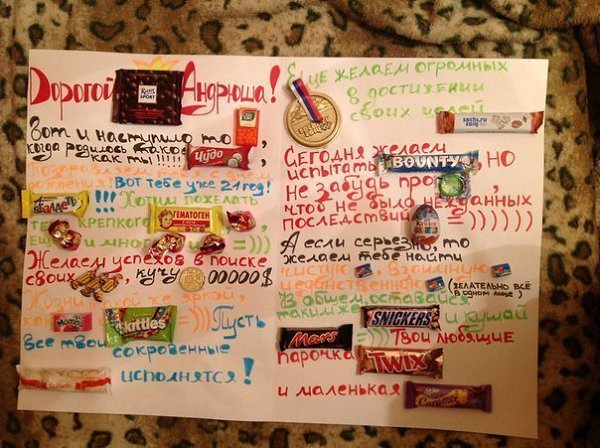 Дорогой
RITTER SPORT
Андрюша!
Вот и наступило то
когда родилось такое
ЧУДО
,
как ты!!!!!
Поздравляем тебя с днём
рождения! Вот тебе уже 21 год!
!!! Хотим пожелать
крепкого
ГЕМАТОГЕН
,
ещё и много
=)))
Желаем успехов в поиске
своих
, кучу
00000$
Жизни такой же яркой,
как
Mamba
Skittles
=))) Пусть
все твои сокровенные
исполнятся!
Ещё желаем огромных
в достижении
своих целей
sochi.ru
2014
Сегодня желаем
испытать
BOUNTY
, но
не забудь про
,
чтоб не было нежданных
последствий
=))))))
А если серьезно, то
желаем тебе найти
чистую
, взаимную
,
единственную
(желательно всё
в одном лице)
В общем, оставайся
таким же
SNICKERS
и кушай
Mars
=)))) Твои любящие
парочка
TWIX
и маленькая
Caramel